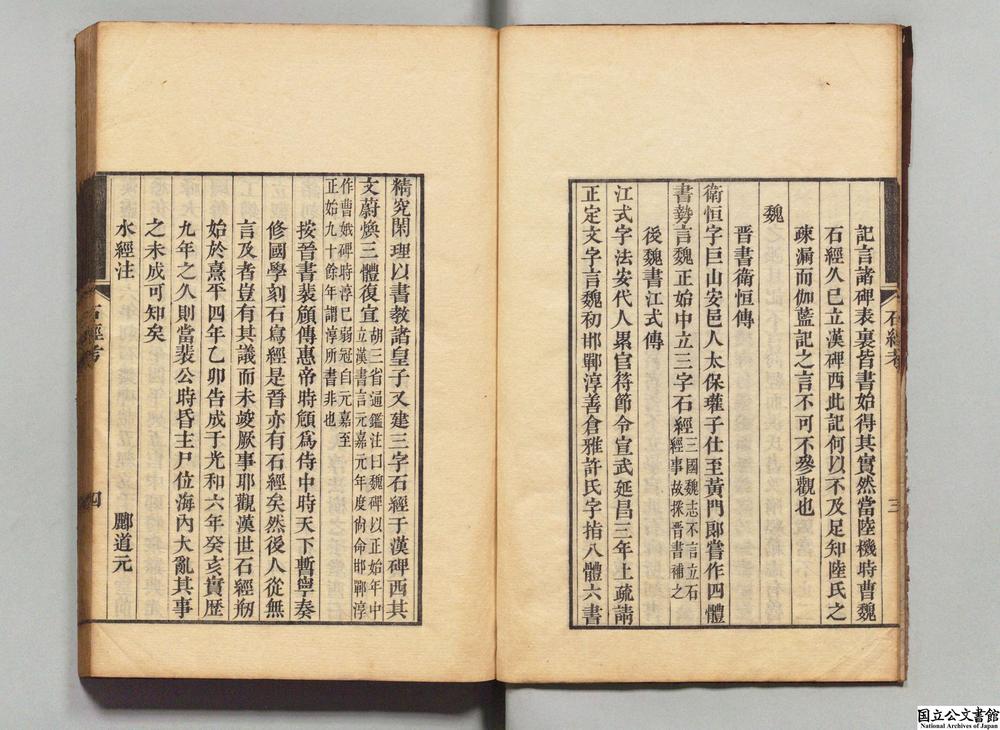 記言諸碑表裏皆書始得其實然當陸機時曹魏
石經久已立漢碑西此記何以不及足知陸氏之
疎漏而伽藍記之言不可不參觀也
魏
晉書衛恒傳
衛恒字巨山安邑人太保瓘子仕至黃門郎嘗作四體
書勢言魏正始中立三字石經三國魏志不言立石
經事故採晉書補之
後魏書江式傳
江式字法安代人累官符節令宣武延昌三年上疏請
正定文字言魏初邯鄲淳善倉雅許氏字指八體六書
石經考
三
精究閑理以書教諸皇子又建三字石經于漢碑西其
文蔚煥三體復宣胡三省通鑑注曰魏碑以正始年中
立漢書言元嘉元年度尚命邯鄲淳
作曹娥碑時淳已弱冠自元嘉至
正始九十餘年謂淳所書非也
按晉書裴頠傳惠帝時頠為侍中時天下暫寧奏
修國學刻石寫經是晉亦有石經矣然後人從無
言及者豈有其議而未竣厥事耶觀漢世石經刱
始於熹平四年乙卯告成于光和六年癸亥實歷
九年之久則當裴公時昏主尸位海內大亂其事
之未成可知矣
水經注 酈道元
石經考
四
国立公文書館
National Archives of Japan